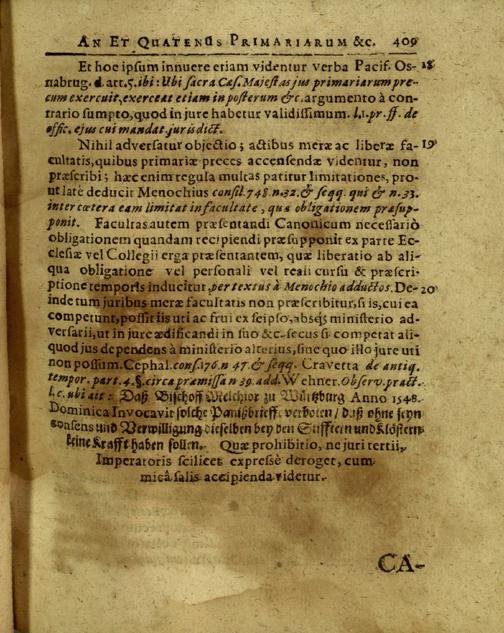 AN ET QUATENUS PRIMARIARUM &c. 409
Et hoc ipsum innuere etiam videntur verba Pacif. Os- 18
nabrug. d. art. 5. ibi: Ubi sacra Cæs. Majestas jus primariarum pre-
cum exercuit, exerceat etiam in posterum &c. argumento à con-
trario sumpto, quod in jure habetur validissimum. l. 1. pr. ff. de
offic. ejus cui mandat. jurisdict.
Nihil adversatur objectio; actibus meræ ac liberæ fa- 19
cultatis, quibus primariæ preces accensendæ videntur, non
præscribi; hæc enim regula multas patitur limitationes, pro-
ut latè deducit Menochius consil. 748. n. 32. & seqq. qui & n. 33.
inter cætera eam limitat in facultate, quæ obligationem præsup-
ponit. Facultas autem præsentandi Canonicum necessariò
obligationem quandam recipiendi præsupponit ex parte Ec-
clesiæ vel Collegii erga præsentantem, quæ liberatio ab ali-
qua obligatione vel personali vel reali cursu & præscri-
ptione temporis inducitur, per textus à Menochio adductos. De- 20
inde tum juribus meræ facultatis non præscribitur, si is, cui ea
competunt, possit iis uti ac frui ex seipso, absq; ministerio ad-
versarii, ut in jure ædificandi in suo &c. secus si competat ali-
quod jus dependens à ministerio alterius, sine quo illo jure uti
non possum. Cephal. cons. 176. n. 47. & seqq. Cravetta de antiq.
tempor. part. 4. §. circa præmissa n. 39. add. Wehner. Observ. pract.
l. c. ubi ait: Daß Bischoff Melchior zu Würtzburg Anno 1548.
Dominica Invocavit solche Panißbrieff verboten / daß ohne seyn
Consens und Verwilligung dieselben bey den Stifftern und Klöstern
keine Krafft haben sollen. Quæ prohibitio, ne juri tertii,
Imperatoris scilicet expressè deroget, cum
micâ salis accipienda videtur.
CA-